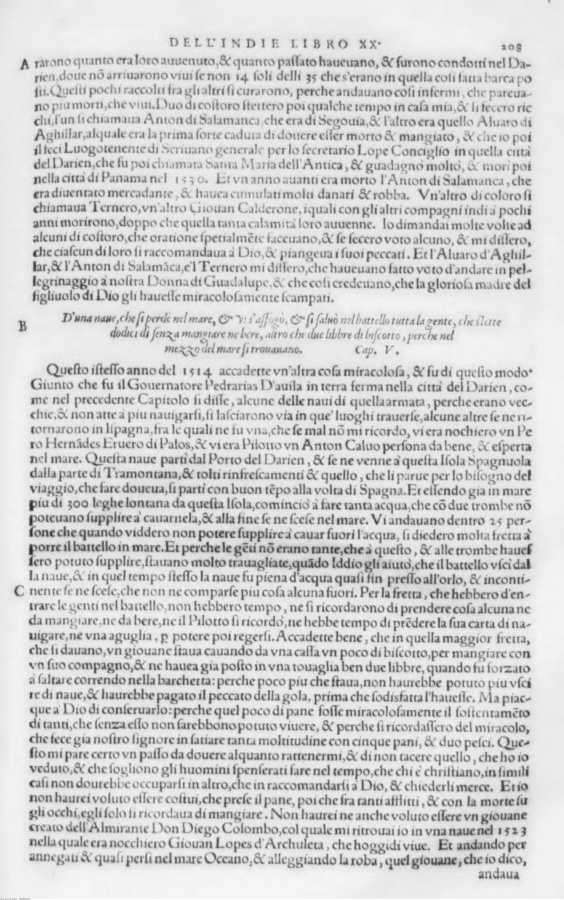 DELL'INDIE LIBRO XX. 208
A rarono quanto era loro auuenuto, & quanto passato haueuano, & furono condotti nel Da-
rien, doue nō arriuarono viui se non 14 soli delli 35 che s'erano in quella cosi fatta barca po
sti. Questi pochi raccolti fra gli altri si curarono, perche andauano cosi infermi, che pareua-
no piu morti, che viui. Duo di costoro stettero poi qualche tempo in casa mia, & si fecero ric
chi, l'un si chiamaua Anton di Salamanca, che era di Segouia, & l'altro era quello Aluaro di
Aghillar, al quale era la prima sorte caduta di douere esser morto & mangiato, & che io poi
il feci Luogotenente di Scriuano generale per lo secretario Lope Conciglio in quella città
del Darien, che fu poi chiamata Santa Maria dell'Antica, & guadagno molto, & morì poi
nella città di Panama nel 1530. Et vn anno auanti era morto l'Anton di Salamanca, che
era diuentato mercadante, & hauea cumulati molti danari & robba. Vn'altro di coloro si
chiamaua Ternero, vn'altro Giouan Calderone, i quali con gli altri compagni indi à pochi
anni morirono, doppo che quella tanta calamità loro auuenne. Io dimandai molte volte ad
alcuni di costoro, che oratione spetialmēte faceuano, & se fecero voto alcuno, & mi dissero,
che ciascun di loro si raccomandaua à Dio, & piangeua i suoi peccati. Et l'Aluaro d'Aghil-
lar, & l'Anton di Salamāca, e'l Ternero mi dissero, che haueuano fatto voto d'andare in pel-
legrinaggio à nostra Donna di Guadalupe, & che cosi credeuano, che la gloriosa madre del
figliuolo di Dio gli hauesse miracolosamente scampati.
B D'una naue, che si perdè nel mare, & vi s'affogò, & si saluò nel battello tutta la gente, che stette
dodici dì senza mangiare ne bere, altro che due libbre di biscotto, perche nel
mezzo del mare si trouauano. Cap. V.
Questo istesso anno del 1514 accadette vn'altra cosa miracolosa, & fu di questo modo.
Giunto che fu il Gouernatore Pedrarias D'auila in terra ferma nella città del Darien, co-
me nel precedente Capitolo si disse, alcune delle naui di quella armata, perche erano vec-
chie, & non atte a piu nauigarsi, si lasciarono via in que' luoghi trauerse, alcune altre se ne ri-
tornarono in Ispagna, fra le quali ne fu vna, che se mal nō mi ricordo, vi era nochiero vn Pe
ro Hernādes Eruero di Palos, & vi era Pilotto vn Anton Caluo persona da bene, & esperta
nel mare. Questa naue partì dal Porto del Darien, & se ne venne à questa Isola Spagnuola
dalla parte di Tramontana, & tolti rinfrescamenti & quello, che li parue per lo bisogno del
viaggio, che fare doueua, si partì con buon tēpo alla volta di Spagna. Et essendo gia in mare
piu di 300 leghe lontana da questa Isola, cominciò a fare tanta acqua, che cō due trombe nō
poteuano supplire à cauarnela, & alla fine se ne scese nel mare. Vi andauano dentro 25 per-
sone che quando viddero non potere supplire à cauar fuori l'acqua, si diedero molta fretta à
porre il battello in mare. Et perche le gēti nō erano tante, che à questo, & alle trombe haues
sero potuto supplire, stauano molto trauagliate, quādo Iddio gli aiutò, che il battello vscì dal
la naue, & in quel tempo stesso la naue fu piena d'acqua quasi fin presso all'orlo, & inconti-
C nente se ne scese, che non ne comparse piu cosa alcuna fuori. Per la fretta, che hebbero d'en-
trare le genti nel battello, non hebbero tempo, ne si ricordarono di prendere cosa alcuna ne
da mangiare, ne da bere, ne il Pilotto si ricordò, ne hebbe tempo di prēdere la sua carta di na-
uigare, ne vna aguglia, p potere poi regersi. Accadette bene, che in quella maggior fretta,
che si dauano, vn giouane staua cauando da vna cassa vn poco di biscotto, per mangiare con
vn suo compagno, & ne hauea gia posto in vna touaglia ben due libbre, quando fu forzato
à saltare correndo nella barchetta: perche poco piu che staua, non haurebbe potuto piu vsci
re di naue, & haurebbe pagato il peccato della gola, prima che sodisfatta l'hauesse. Ma piac-
que à Dio di conseruarlo: perche quel poco di pane fosse miracolosamente il sostentamēto
di tanti, che senza esso non sarebbono potuto viuere, & perche si ricordassero del miracolo,
che fece gia nostro signore in satiare tanta moltitudine con cinque pani, & duo pesci. Que-
sto mi pare certo vn passo da douere alquanto rattenermi, & di non tacere quello, che ho io
veduto, & che sogliono gli huomini spensierati fare nel tempo, che chi è christiano, in simili
casi non dourebbe occuparsi in altro, che in raccomandarsi a Dio, & chiederli merce. Et io
non haurei voluto essere costui, che prese il pane, poi che fra tanti afflitti, & con la morte su
gli occhi, egli solo si ricordaua di mangiare. Non haurei ne anche voluto essere vn giouane
creato dell'Almirante Don Diego Colombo, col quale mi ritrouai io in vna naue nel 1523
nella quale era nocchiero Giouan Lopes d'Archuleta, che hoggidì viue. Et andando per
annegati & quasi persi nel mare Oceano, & alleggiando la roba, quel giouane, che io dico,
andaua